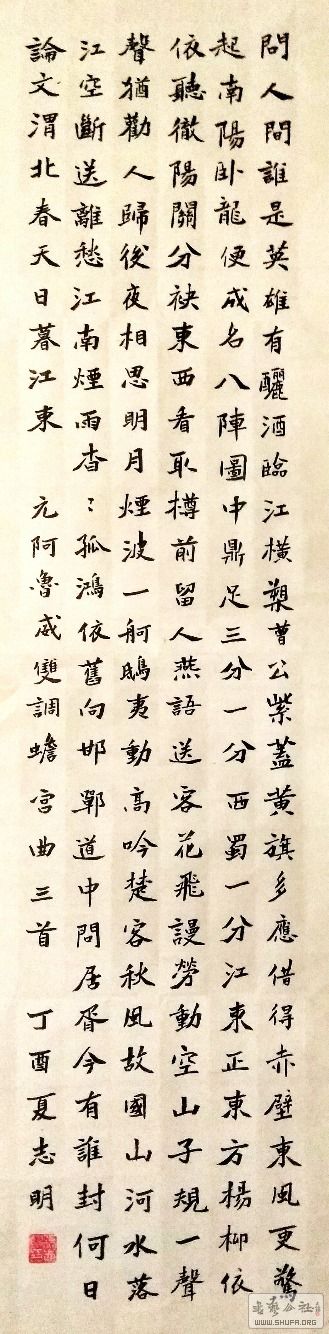 問人間誰是英雄有釃酒臨江橫槊曹公紫蓋黃旗多應借得赤壁東風更驚
起南陽臥龍便成名八陣圖中鼎足三分一分西蜀一分江東正東方楊柳依
依聽徹陽關分袂東西看取樽前留人燕語送客花飛謾勞動空山子規一聲
聲猶勸人歸後夜相思明月煙波一舸鴟夷動高吟楚客秋風故國山河水落
江空斷送離愁江南煙雨杳〻孤鴻依舊向邯鄲道中問居胥今有誰封何日
論文渭北春天日暮江東 元阿魯威雙調蟾宮曲三首 丁酉夏志明
书艺公社
WWW.SHUFA.ORG